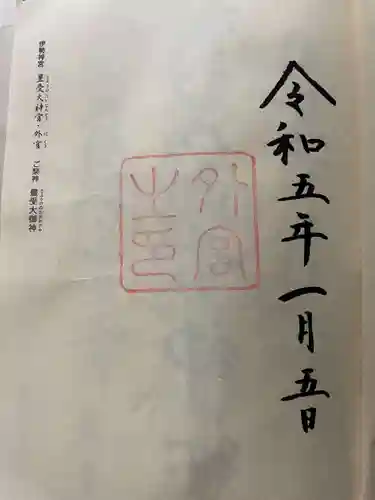 令和五年一月五日
外宮
之印
伊勢神宮 豊受大神宮・外宮 ご祭神 豊受大御神